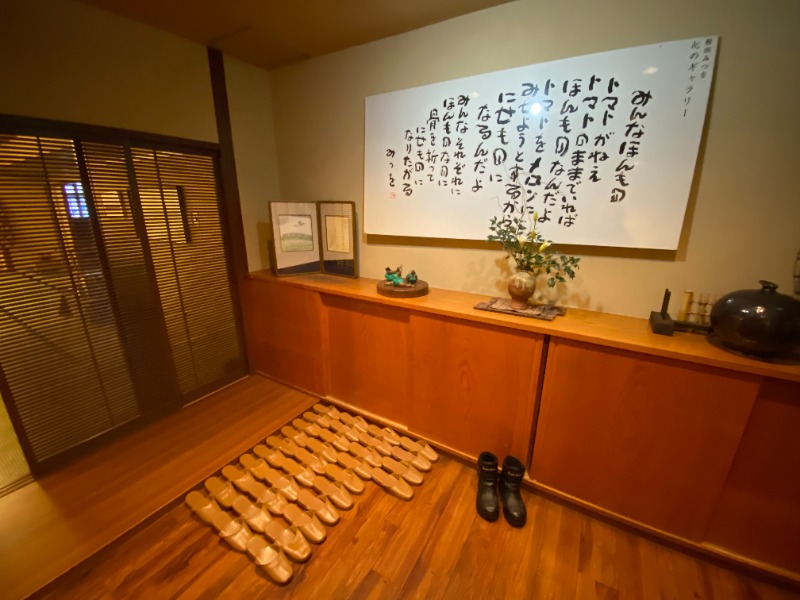 相田みつを
心のギャラリー
みんなほんもの
トマトがねえ
トマトのままでいれば
ほんものなんだよ
トマトをメロンに
みせようとするから
にせものに
なるんだよ
みんなそれぞれに
ほんものなのに
骨を折って
にせものに
なりたがる
みつを